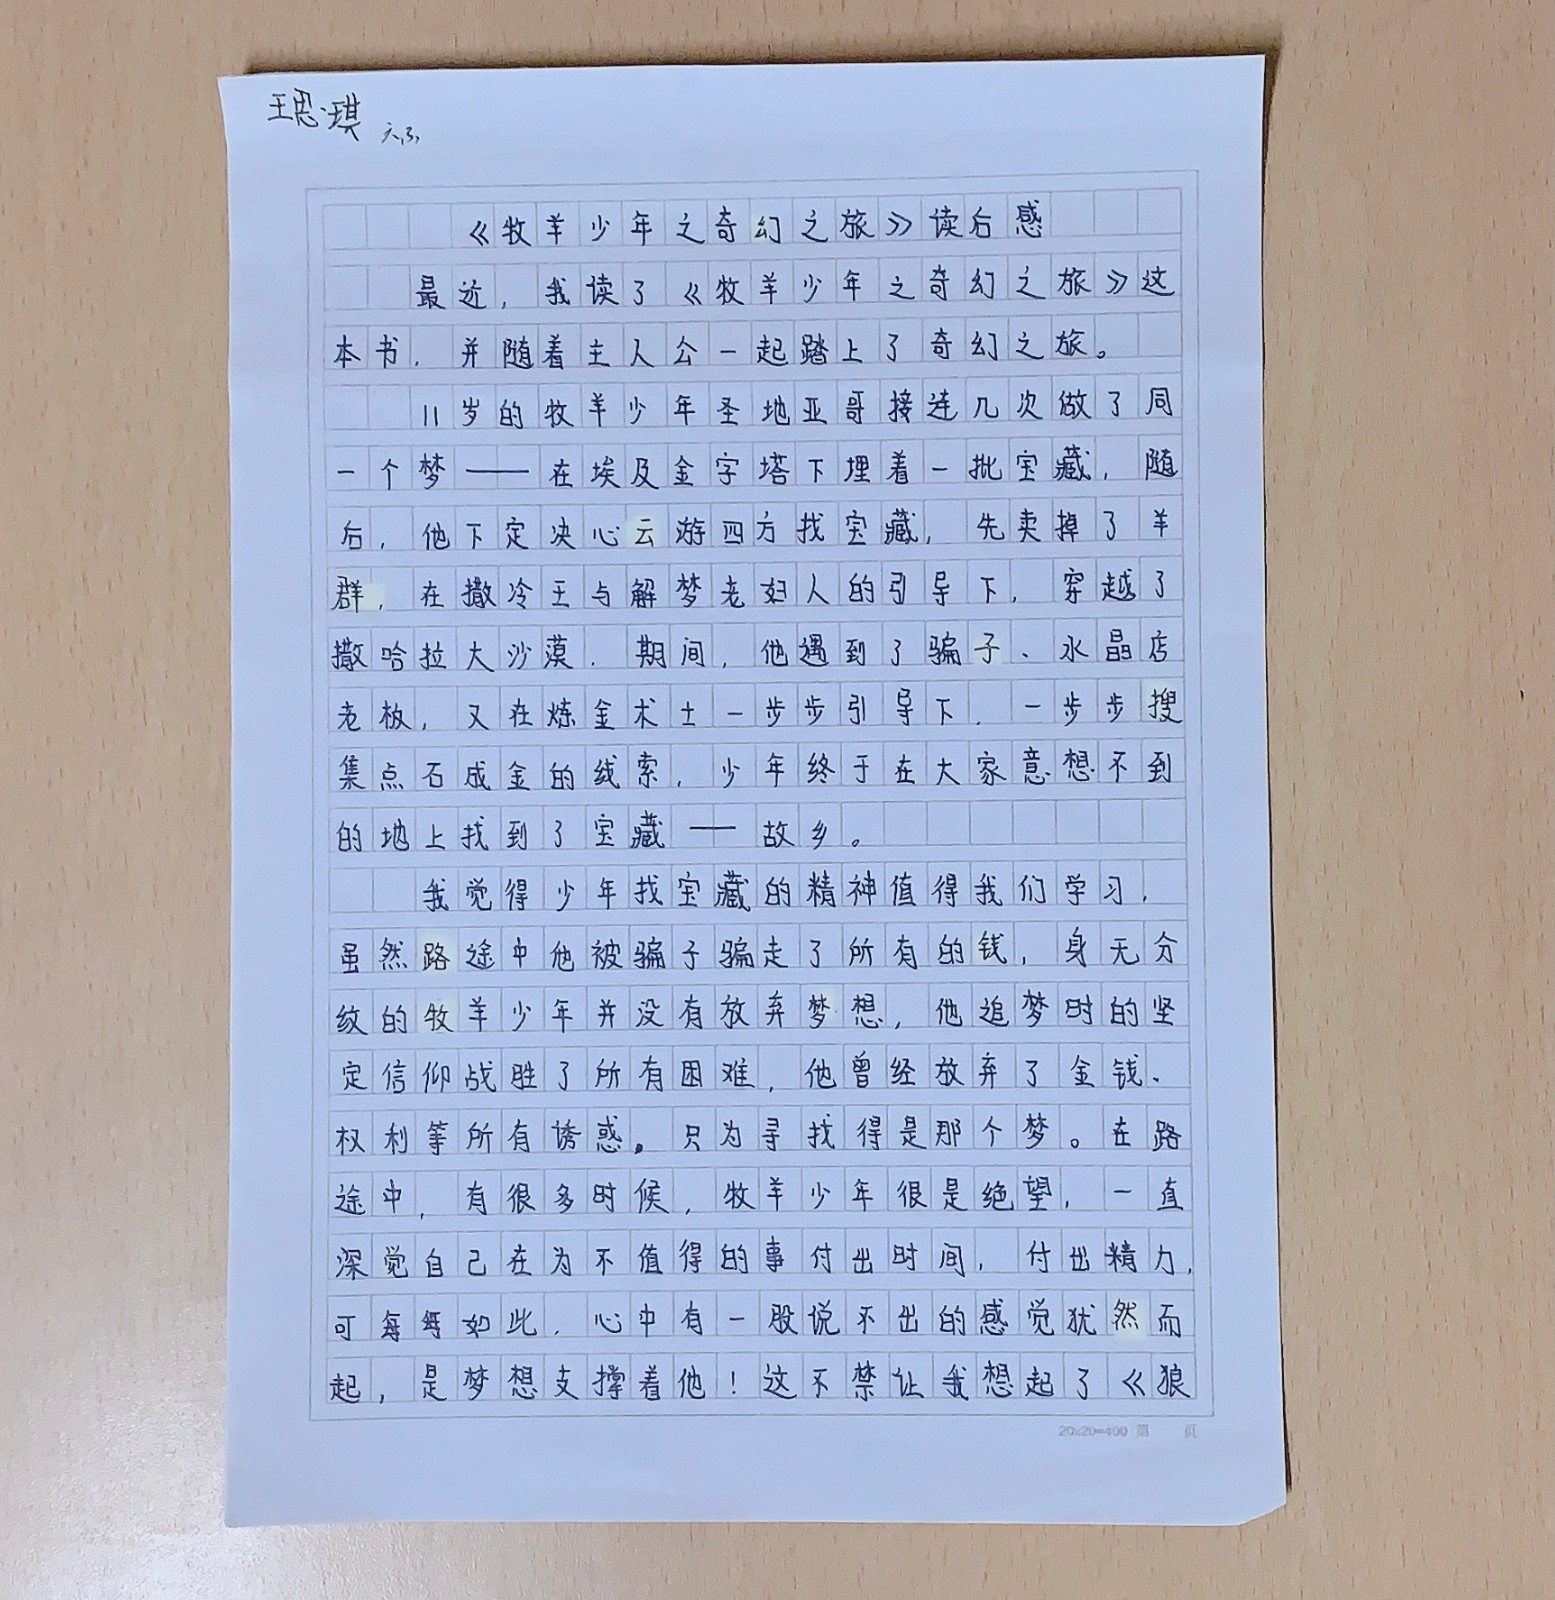 王思琪
《牧羊少年之奇幻之旅》读后感
最近，我读了《牧羊少年之奇幻之旅》这
本书，并随着主人公一起踏上了奇幻之旅。
11岁的牧羊少年圣地亚哥接连几次做了同
一个梦——在埃及金字塔下埋着一批宝藏，随
后，他下定决心云游四方找宝藏，先卖掉了羊
群，在撒冷王与解梦老妇人的引导下，穿越了
撒哈拉大沙漠．期间，他遇到了骗子、水晶店
老板，又在炼金术士一步步引导下．一步步搜
集点石成金的线索，少年终于在大家意想不到
的地上找到了宝藏——故乡。
我觉得少年找宝藏的精神值得我们学习，
虽然路途中他被骗子骗走了所有的钱，身无分
纹的牧羊少年并没有放弃梦想，他追梦时的坚
定信仰战胜了所有困难，他曾经放弃了金钱、
权利等所有诱惑。只为寻找得是那个梦。在路
途中，有很多时候，牧羊少年很是绝望，一直
深觉自己在为不值得的事付出时间，付出精力，
可每每如此．心中有一股说不出的感觉犹然而
起，是梦想支撑着他！这不禁让我想起了《狼
20x20=400 第 页